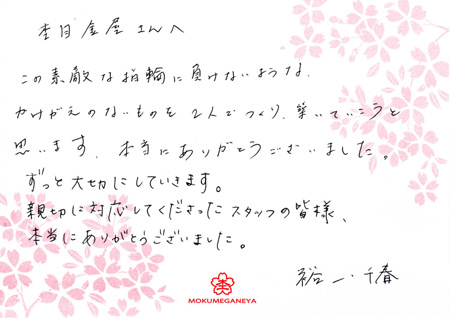 杢目金屋さんへ
この素敵な指輪に負けないような、
かけがえのないものを2人でつくり、築いていこうと
思います。本当にありがとうございました。
ずっと大切にしていきます。
親切に対応してくださったスタッフの皆様、
本当にありがとうございました。
裕一・千春
MOKUMEGANEYA